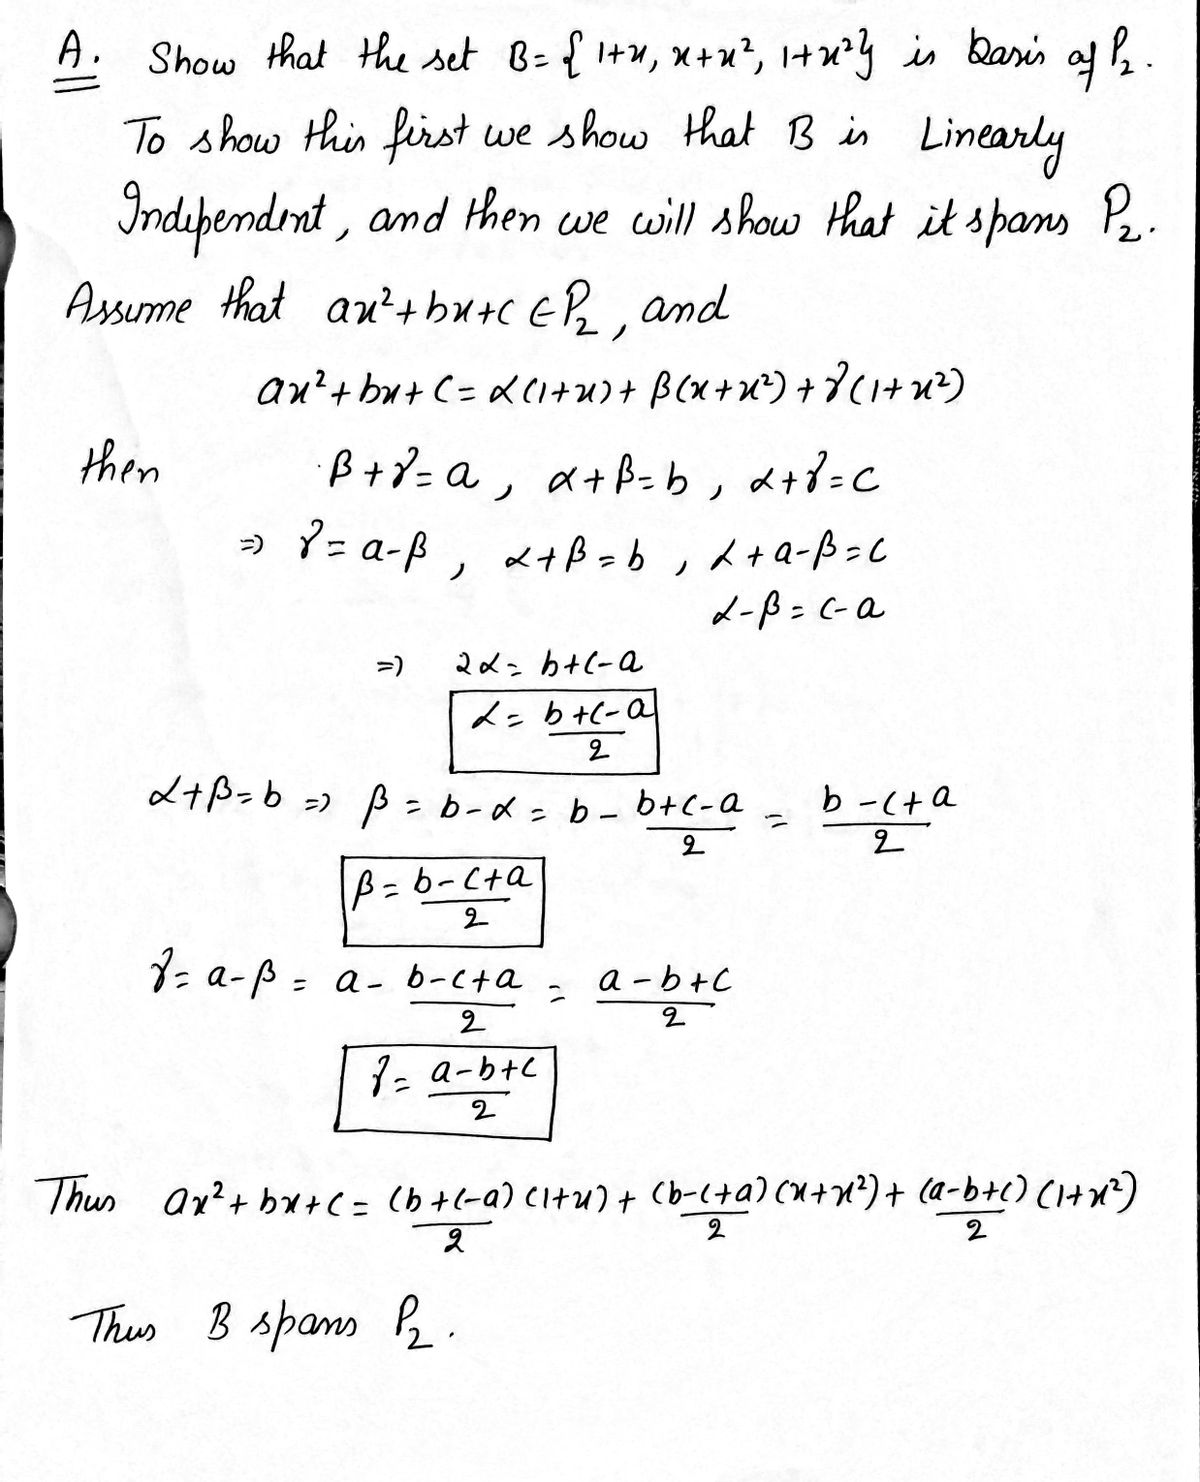 A. Show that the set B = { 1+x, x+x², 1+x² } is Basis of P₂.
To show this first we show that B is Linearly
Independent, and then we will show that it spans P₂.
Assume that ax²+bx+c ∈ P₂, and
ax²+bx+c = α(1+x) + β(x+x²) + γ(1+x²)
then β+γ = a, α+β = b, α+γ = c
⇒ γ = a-β, α+β = b, α+a-β = c
α-β = c-a
⇒ 2α = b+c-a
α = (b+c-a)/2
α+β = b ⇒ β = b-α = b - (b+c-a)/2 = (b-c+a)/2
β = (b-c+a)/2
γ = a-β = a - (b-c+a)/2 = (a-b+c)/2
γ = (a-b+c)/2
Thus ax²+bx+c = (b+c-a)/2 (1+x) + (b-c+a)/2 (x+x²) + (a-b+c)/2 (1+x²)
Thus B spans P₂.